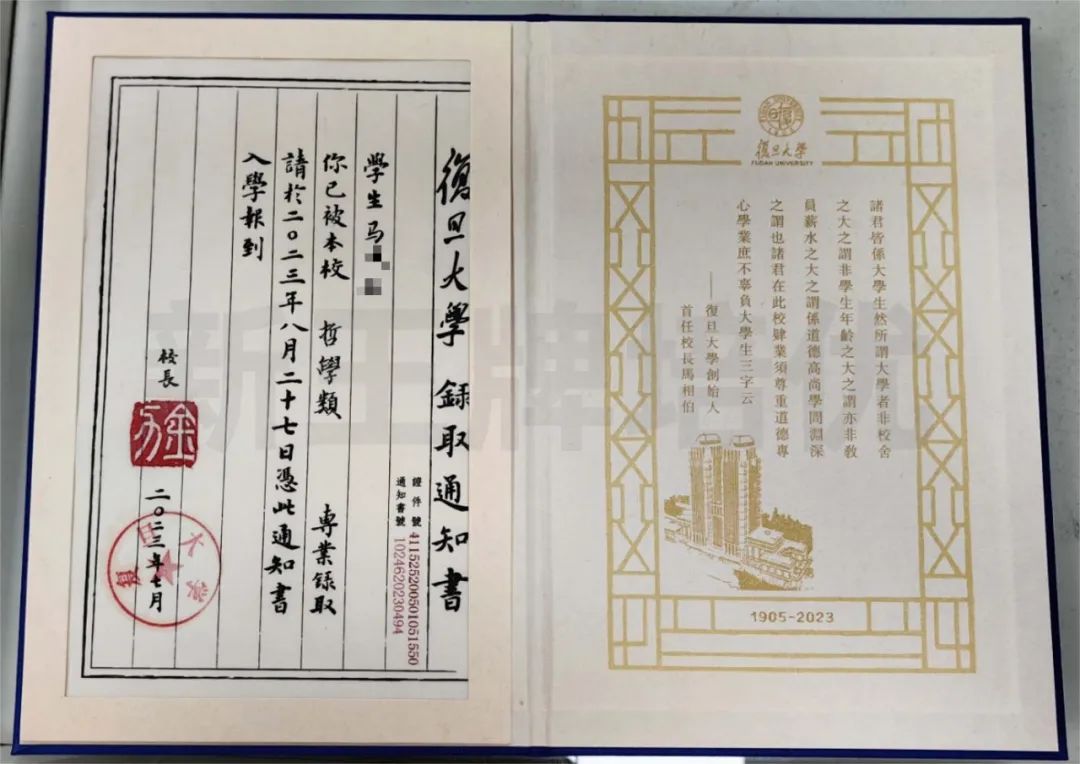 復旦大學 錄取通知書
證件號 411525200501051550
通知書號 1024620230494
學生马
你已被本校 哲學類 專業錄取
請於二〇二三年八月二十七日憑此通知書
入學報到
校長
金力
二〇二三年七月
復旦大學
復旦大學
FUDAN UNIVERSITY
諸君皆係大學生然所謂大學者非校舍
之大之謂非學生年齡之大之謂亦非教
員薪水之大之謂係道德高尚學問淵深
之謂也諸君在此校肄業須尊重道德專
心學業庶不辜負大學生三字云
——復旦大學創始人
首任校長馬相伯
1905-2023
新王牌培优